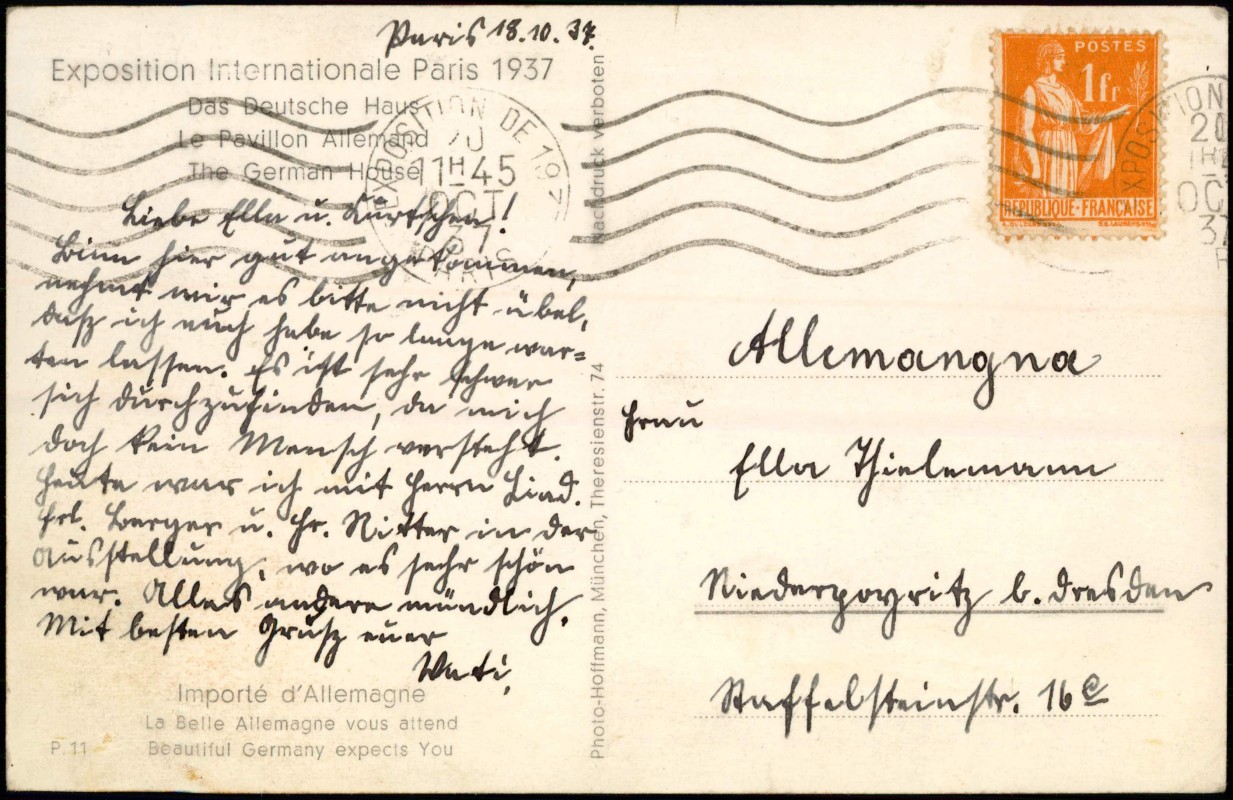 Paris 18.10.37.
Exposition Internationale Paris 1937
Das Deutsche Haus
Le Pavillon Allemand
The German House
Liebe Ella u. Kurtchen!
Binn hier gut angekommen,
nehmt mir es bitte nicht übel,
daß ich euch habe so lange war=
ten lassen. Es ist sehr schwer
sich durchzufinden, da mich
doch kein Mensch versteht.
Heute war ich mit Herrn Lind.
Frl. Berger u. Hr. Ritter in der
Ausstellung, wo es sehr schön
war. Alles andere mündlich.
Mit besten Gruß euer
Vati.
Importé d'Allemagne
La Belle Allemagne vous attend
P. 11 Beautiful Germany expects You
Photo-Hoffmann, München, Theresienstr. 74
Nachdruck verboten
EXPOSITION DE 1937
20
11H45
OCT
37
PARIS
POSTES
1fr
REPUBLIQUE-FRANÇAISE
EXPOSITION
20
OCT
37
Allemangna
Frau
Ella Thielemann
Niederpoyritz b. Dresden
Staffelsteinstr. 16c